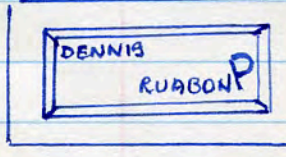 DENNIS
RUABON P